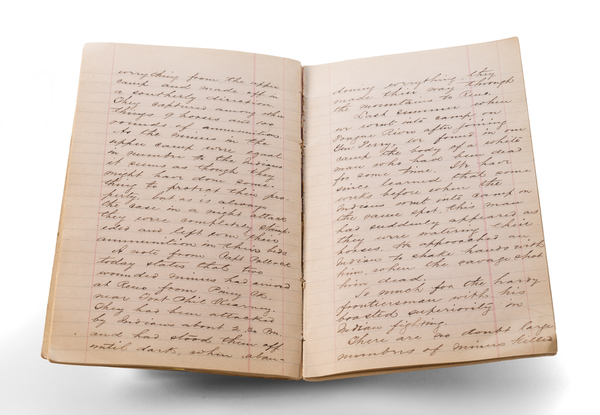 everything from the upper
camp and made off in
a southerly direction.
They captured among other
things 9 horses and 400
rounds of ammunition.
As the miners in the
upper camp were equal
in number to the Indians
it seems as though they
might have done some-
thing to protect their pro-
perty. but as is always
the case in a night attack
they were completely stamp-
eded and left even their
ammunition in their beds
A note from Capt
today states that two
wounded miners had arrived
at Reno from Piney Ck.
near Fort Phil Kearney.
They had been attacked
by Indians about 2.30 PM
and had stood them off
until dark, when aban-
doning everything, they
made their way through
the mountains to Reno.
Last summer when
we went into camp on
Tongue River after joining
Gen Terry, we found in our
camp the body of a white
man who had been dead
for some time. We have
since learned that some
weeks before when the
Indians went into camp on
the same spot, this man
had suddenly appeared as
they were watering their
horses. He approached an
Indian to shake hands with
him, when the savage shot
him dead.
So much for the hardy
frontiersman with his
boasted superiority in
Indian fighting.
There are no doubt large
numbers of miners killed